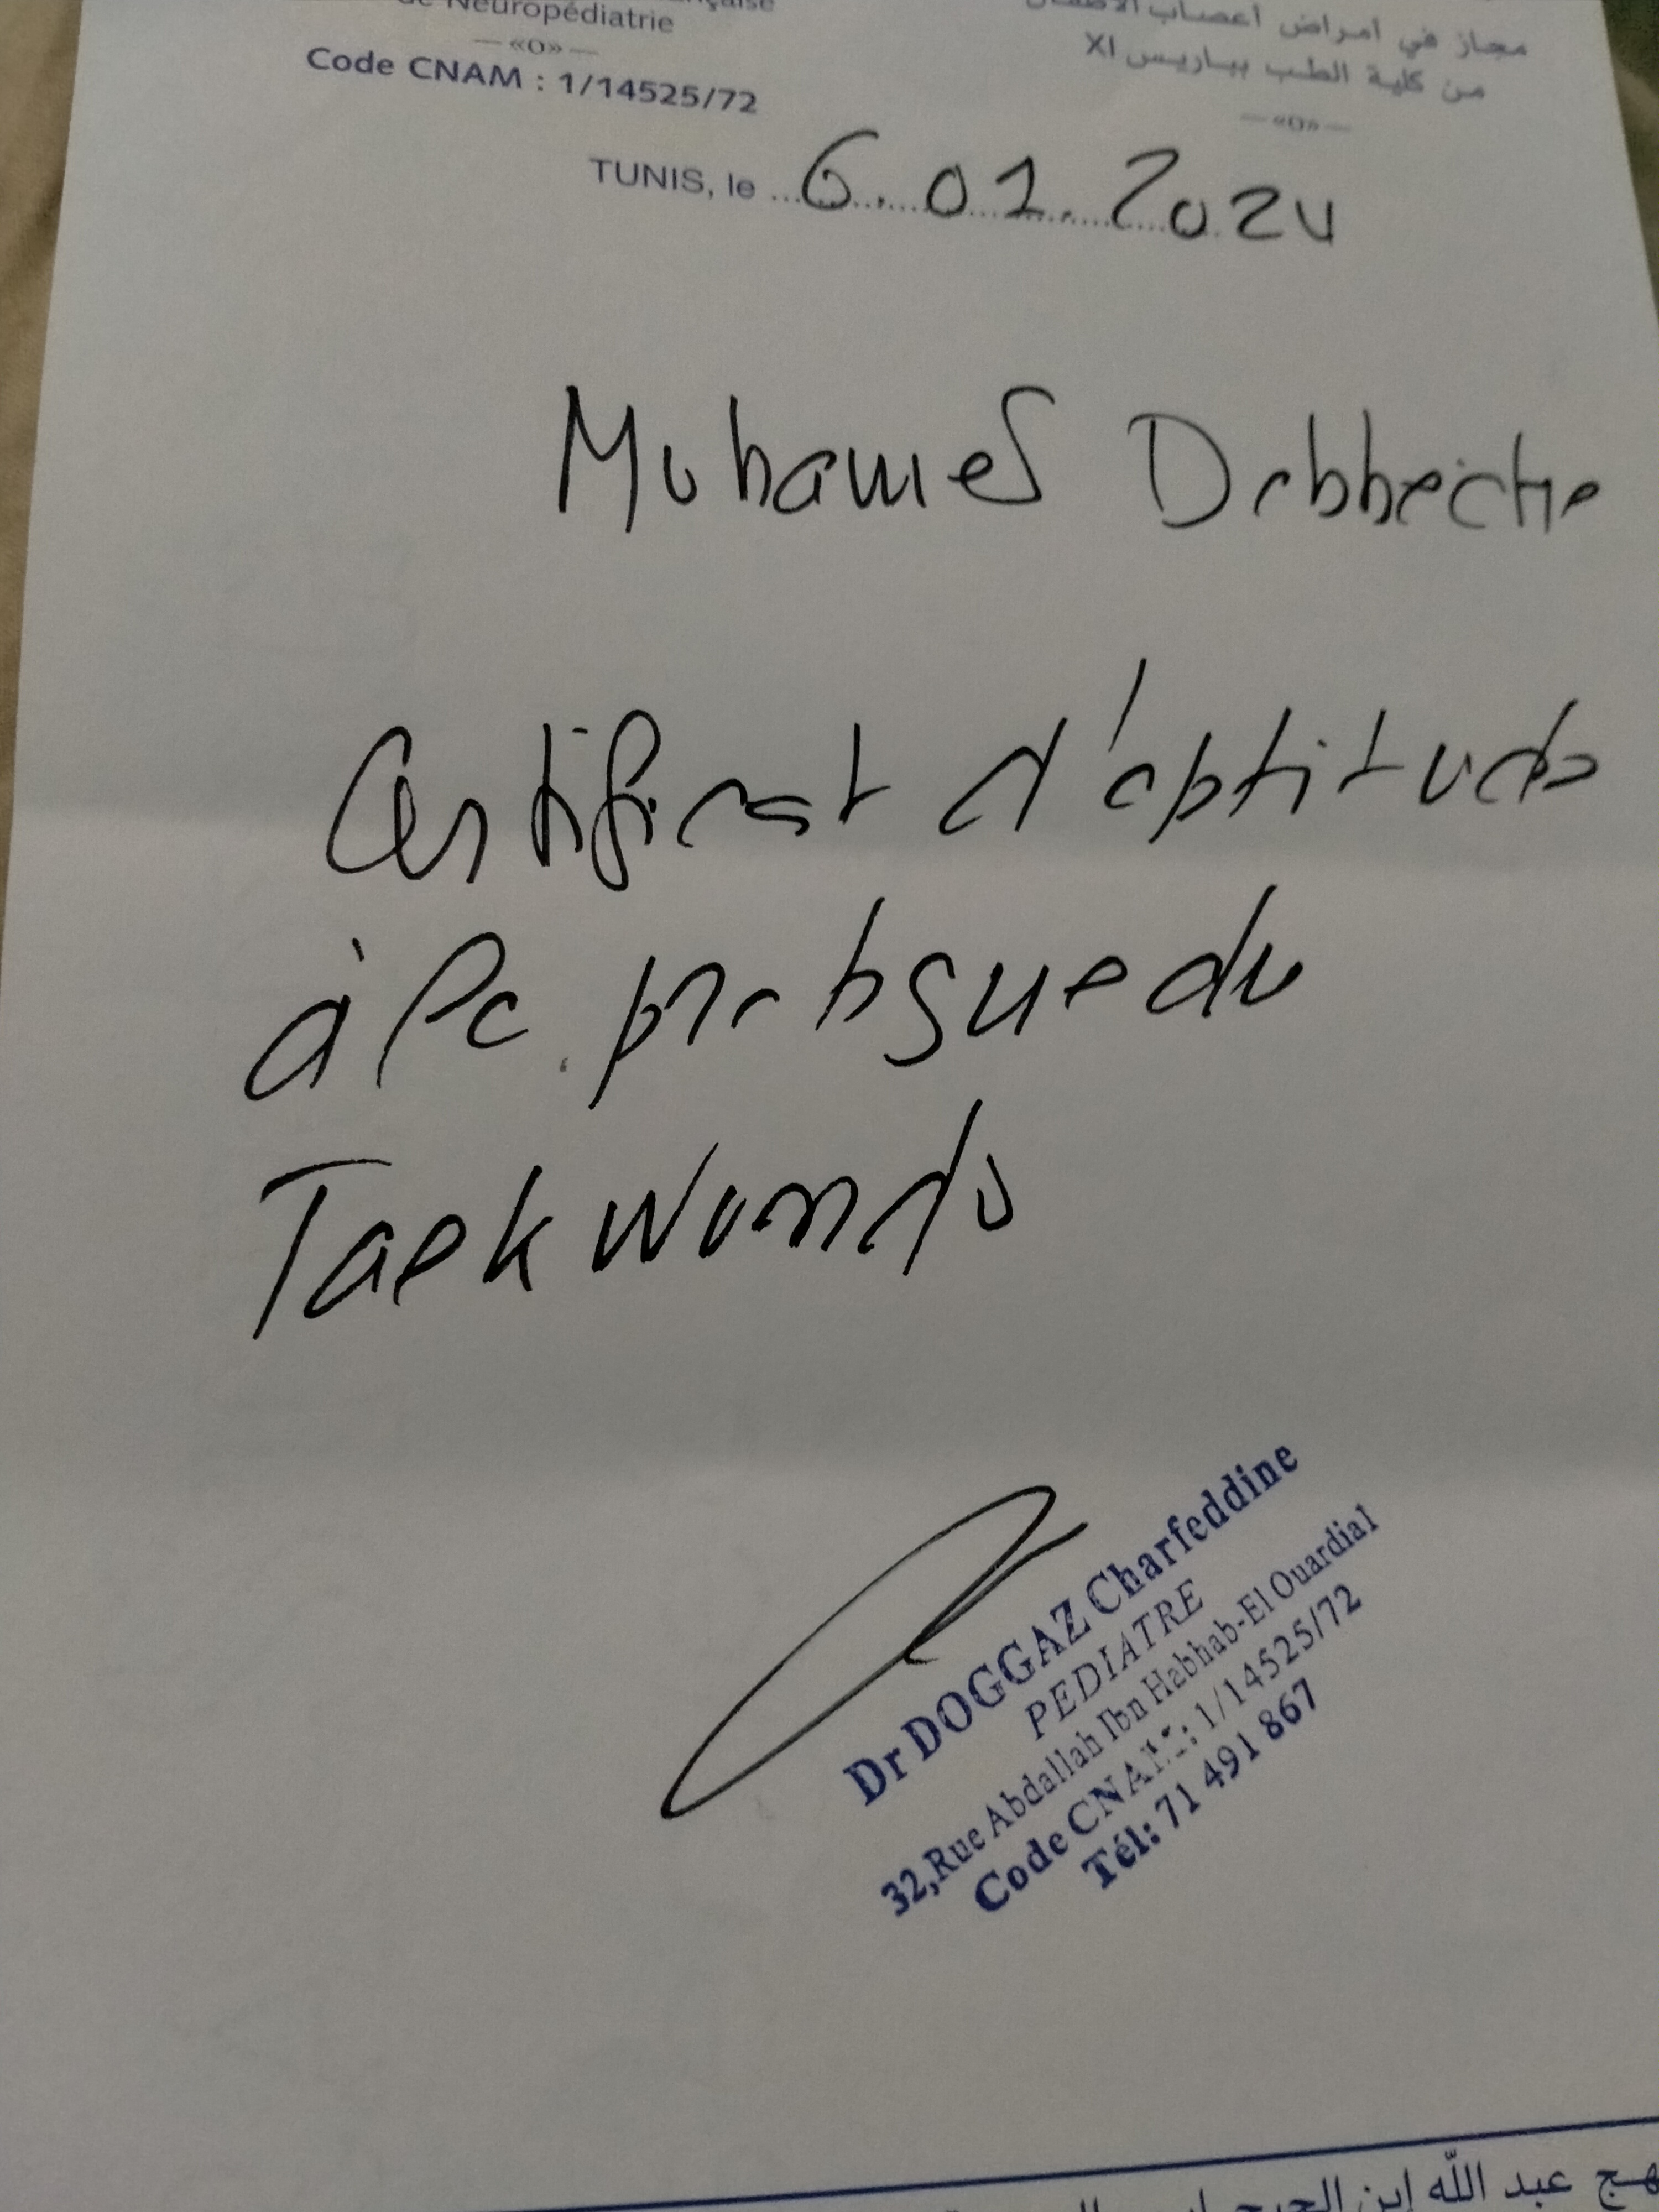 de Neuropédiatrie
—«O»—
Code CNAM : 1/14525/72
مجاز في أمراض أعصاب الأطفال
من كلية الطب بباريس XI
—«O»—
TUNIS, le 6.01.2024
Mohamed Debbeche
Certificat d'aptitude
à la pratique du
Taekwondo
Dr DOGGAZ Charfeddine
PEDIATRE
32,Rue Abdallah Ibn Habhab-El Ouardia1
Code CNAM: 1/14525/72
Tél: 71 491 867
نهج عبد الله إبن